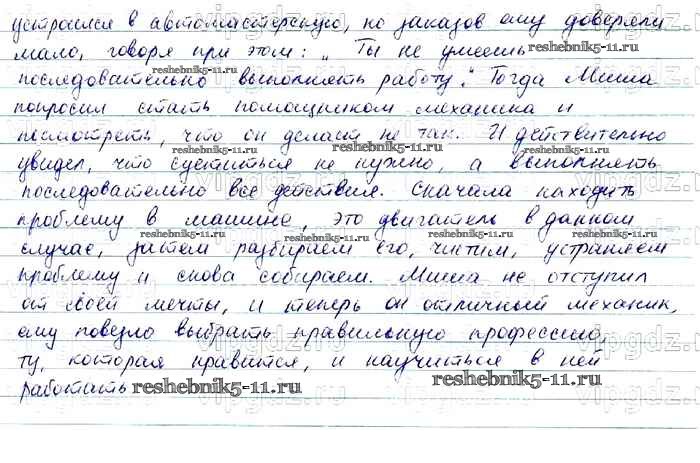 устроился в автомастерскую, но заказов ему доверяли
мало, говоря при этом: „Ты не умеешь
последовательно выполнять работу." Тогда Миша
попросил стать помощником механика и
посмотреть, что он делает не так. И действительно
увидел, что суетиться не нужно, а выполнять
последовательно все действия. Сначала находить
проблему в машине, это двигатель в данном
случае, затем разбираем его, чистим, устраняем
проблему и снова собираем. Миша не отступил
от своей мечты, и теперь он отличный механик,
ему повезло выбрать правильную профессию
ту, которая нравится, и научиться в ней
работать
reshebnik5-11.ru
vipgdz.ru